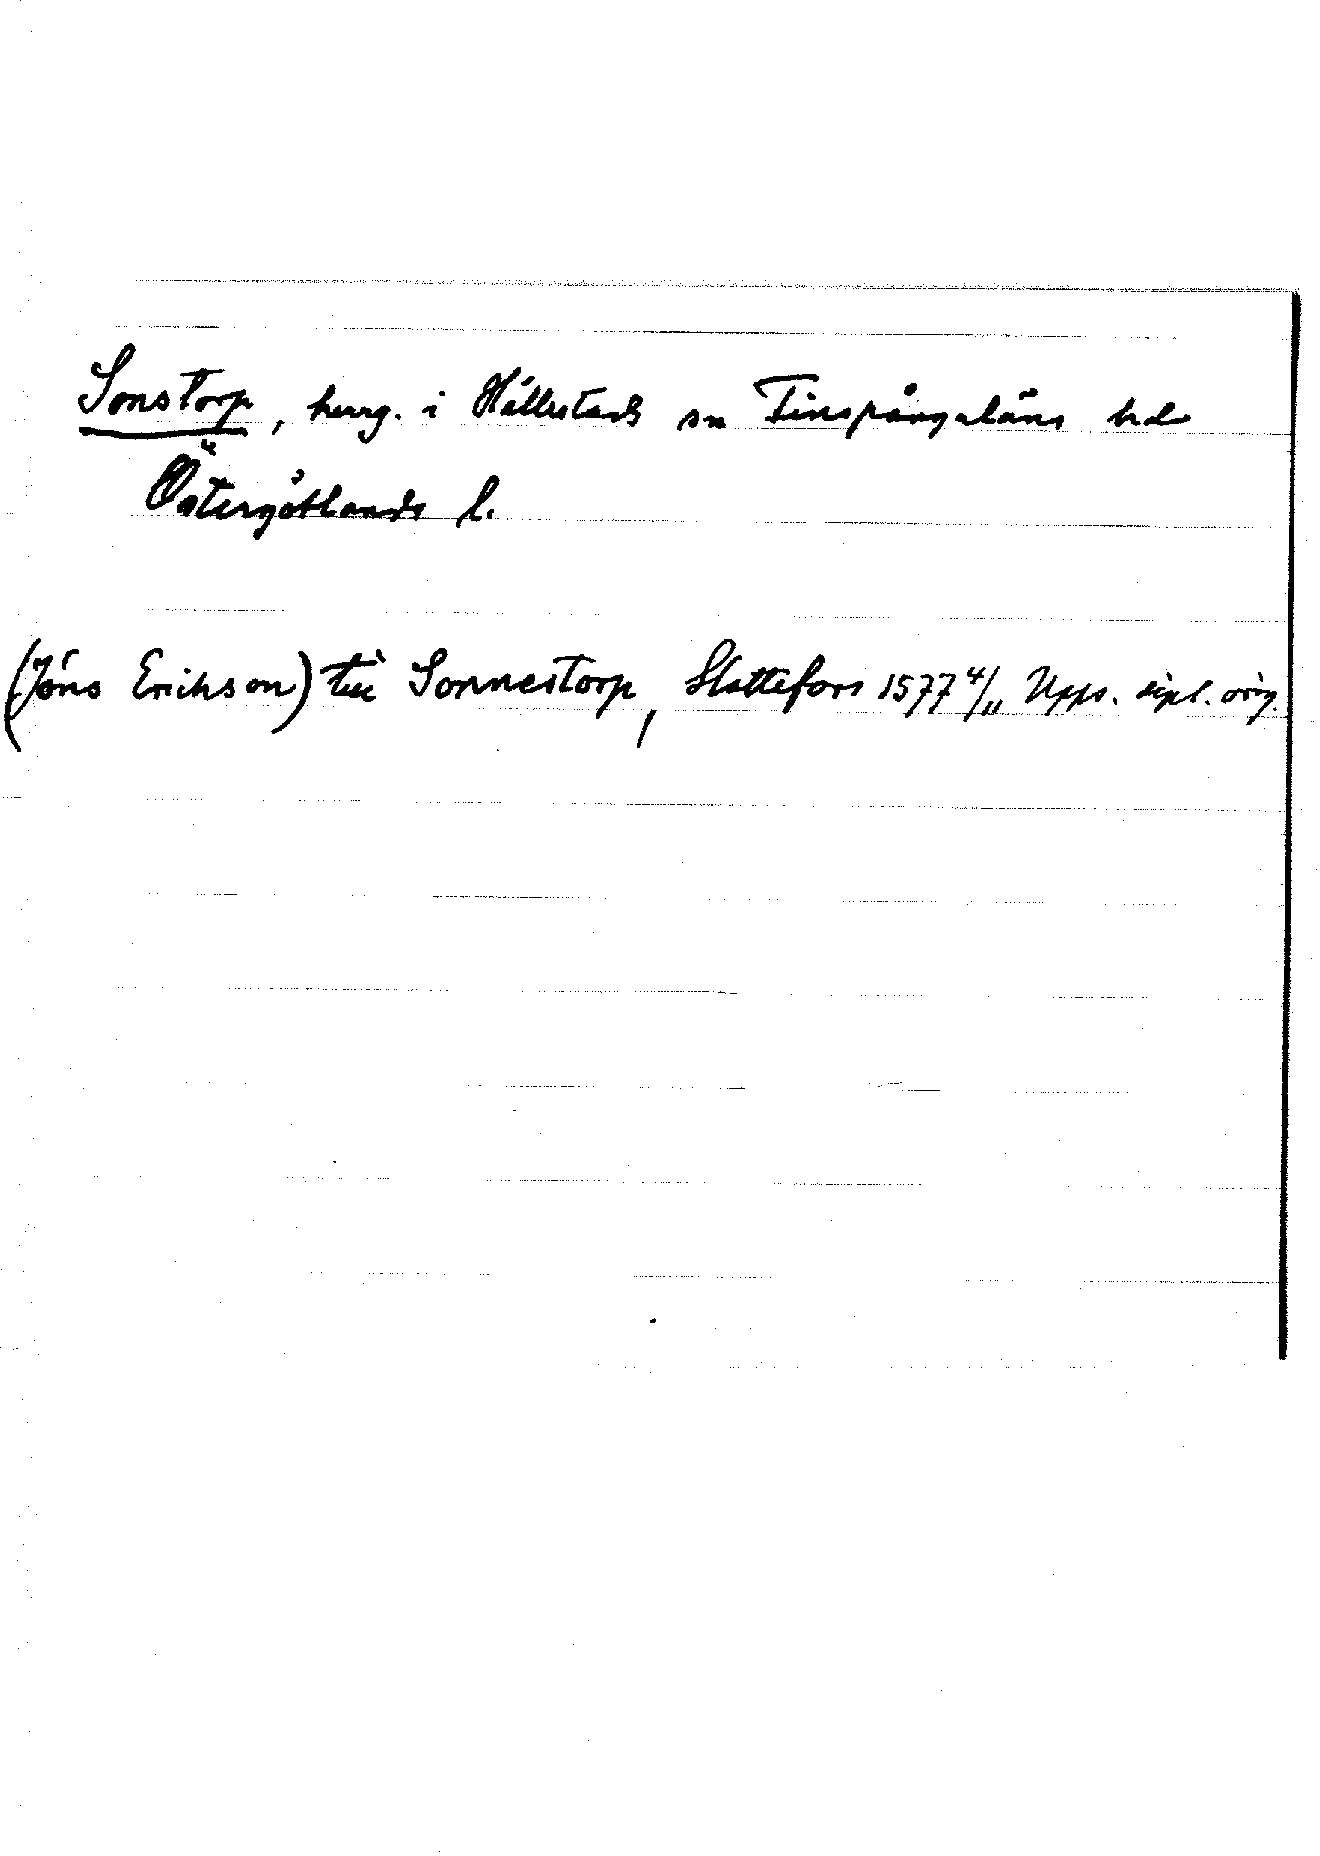 Sonstorp, herrg. i Hällestads sn Finspångaläns hd
Östergötlands l.
(Jöns Erichson) till Sonnestorp, Slottefors 1577 4/11 Upps. dipl. orig.